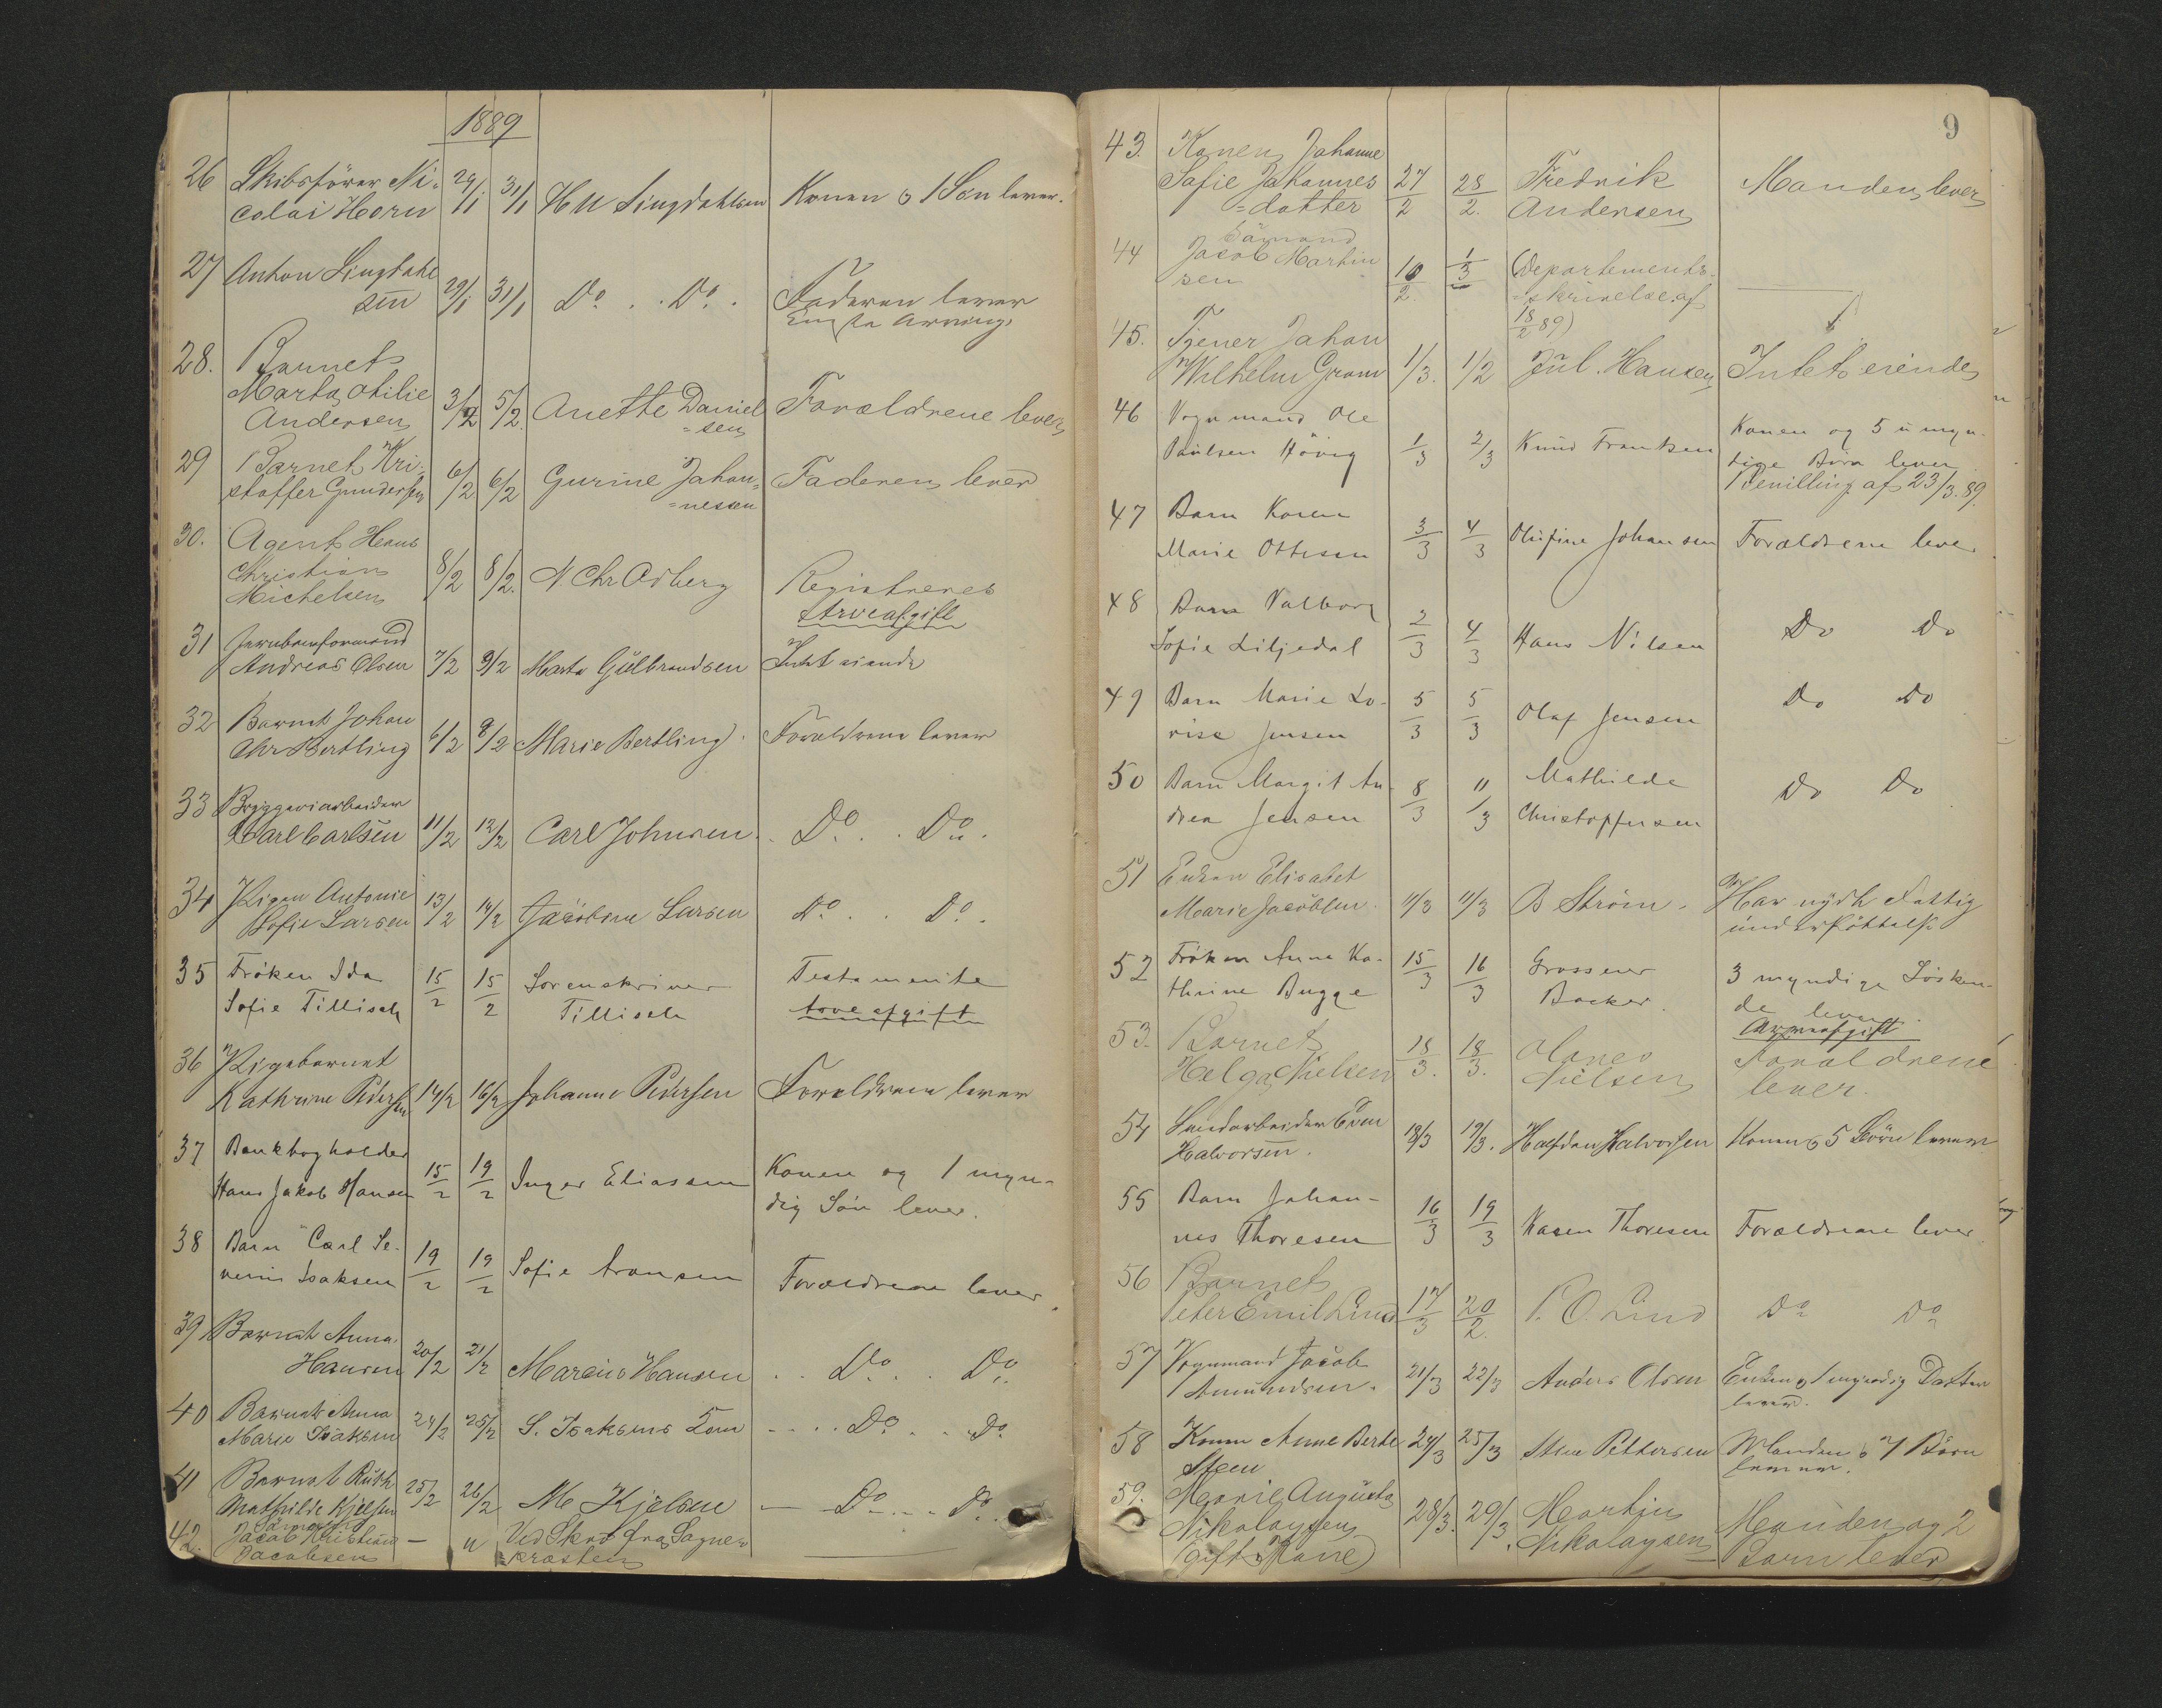 1889
26 Skibsförer Ni-
colai Horn 29/1 31/1 H M Lingdahlsen Konen o 1 Sön lever.
27 Anton Lingdahl
sen 29/1 31/1 Do . . Do .
Faderen lever
28. Barnet
Marta Otilie
Andersen 3/2 5/2. Anette Daniel
=sen
Forældrene lever
29 Barnet Kri-
stoffer Gundersen 6/2 6/2 Gurine Johan-
=nessen
Faderen lever
30. Agent Hans
Christian
Michelsen 8/2 8/2. N. Chr Asberg
Registreres
Arveafgift
31 Jernbaneformand
Andreas Olsen 7/2 9/2 Marta Gulbrandsen Intet eiende
32 Barnet Johan
Chr Bertling 6/2 8/2 Marie Bertling. Forældrene lever
33 Bryggeriarbeider
Carl Carlsen 11/2 12/2 Carl Johnsen . . Do . . Do .
34 Pigen Antonie
Sofie Larsen 13/2 14/2 Jacobine Larsen Do . . Do .
35 Fröken Ida
Sofie Tillisch 15/2 15/2 Sorenskriver
Tillisch
Testamente
Arveafgift
36 Pigebarnet
Kathrine Pedersen 14/2 16/2 Johanne Pedersen Forældrene lever
37 Bankbogholder
Hans Jakob Hansen 15/2 19/2 Inger Eliassen Konen og 1 myn-
dig Sön lever.
38 Barn Carl Se-
verin Isaksen 19/2 19/2 Sofie Aronsen Forældrene lever.
39 Barnet Anna
Hansen 20/2 21/2 Marcius Hansen . . Do . . Do .
40 Barnet Anna
Marie Isaksen 24/2 25/2 S. Isaksens . . . . Do . . Do
41 Barnet Ruth
Mathilde Kjelsen 25/2 26/2 M Kjelsen — Do . . . Do .
42. Sömand
Jacob Kristian
Jacobsen — " Ved Skr fra Sogne-
præsten
9
43. Konen Johanne
Sofie Johannes
=datter 27/2 28/2. Fredrik
Andersen
Manden lever
44 Sömand
Jacob Martin
sen 10/2. 1/3 (Departements-
=skrivelse af
18/2 89)
45. Tjener Johan
Wilhelm Gram 1/3. 1/2 Jul. Hansen Intet eiende
46 Vognmand Ole
Paulsen Hövig 1/3 2/3 Knud Frantsen Konen og 5 umyn-
dige Börn lever
Bevilling af 23/3. 89.
47 Barn Karen
Marie Ottesen 3/3 4/3 Olufine Johansen Forældrene lever
48 Barn Valborg
Sofie Liljedal 2/3 4/3 Hans Nilsen Do Do
49 Barn Marie Lo-
vise Jensen 5/3 5/3 Olaf Jensen Do Do
50 Barn Margit An-
drea Jensen 8/3 11/3 Mathilde
Christophersen
Do Do
51 Enken Elisabet
Marie Jacobsen 11/3 11/3 B Ström. Har nydt Fattig
understöttelse
52 Fröken Anna Ka-
thrine Bugge 15/3 16/3 Grosserer
Backer
3 myndige Sösken-
de lever.
Arveafgift
53. Barnet
Helga Nielsen 18/3. 18/3. Olaves
Nielsen
Forældrene
lever.
54 Sandarbeider Even
Halvorsen. 18/3 19/3. Halfdan Halvorsen Konen o 5 Börn lever
55 Barn Johan-
nes Thoresen 16/3 19/3 Karen Thoresen Forældrene lever
56 Barnet
Peter Emil Lind 17/3 20/2. P. O. Lind Do Do
57 Vognmand Jacob
Amundsen. 21/3 22/3 Anders Olsen Enken o 1 myndig Datter
lever.
58 Konen Anne Berte
Steen 24/3 25/3 Sten Pettersen Manden o 7 Börn
lever.
59. Marie Augusta
Nikolaysen
(gift Kone) 28/3. 29/3. Martin
Nikolaysen
Manden og 2
Barn lever